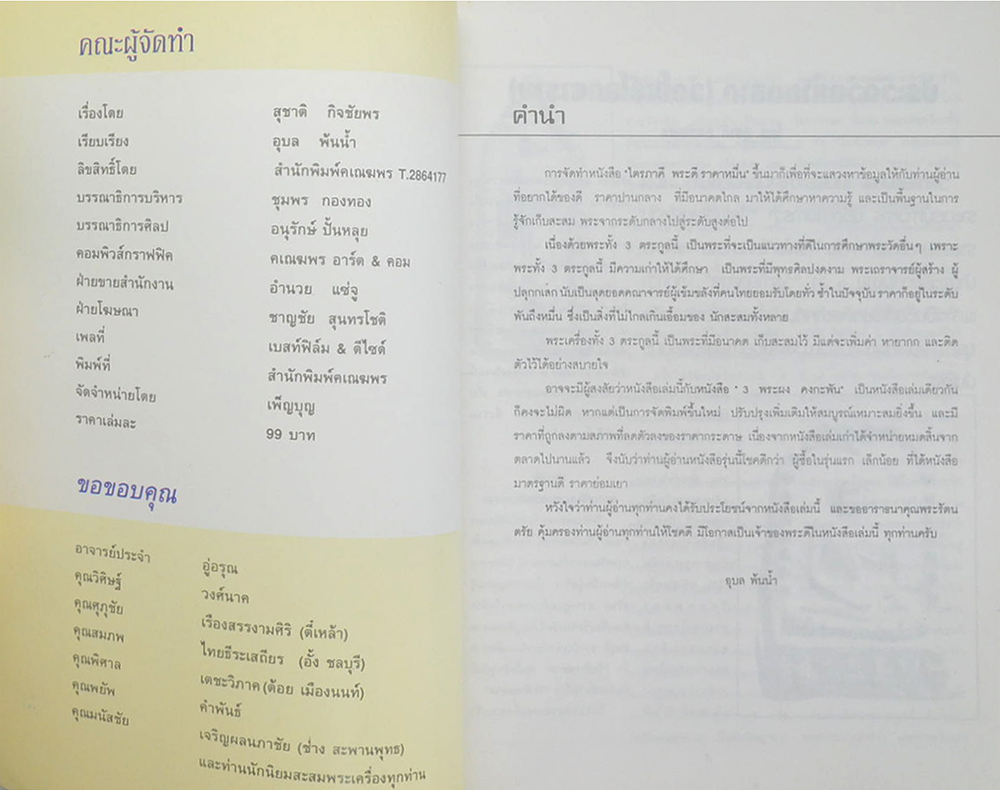 คณะผู้จัดทำ
เรื่องโดย สุชาติ กิจชัยพร
เรียบเรียง อุบล พ้นน้ำ
ลิขสิทธิ์โดย สำนักพิมพ์คเณฆพร T.2864177
บรรณาธิการบริหาร ชุมพร กองทอง
บรรณาธิการศิลป อนุรักษ์ ปั้นหลุย
คอมพิวส์กราฟฟิค คเณฆพร อาร์ต & คอม
ฝ่ายขายสำนักงาน อำนวย แซ่จู
ฝ่ายโฆษณา ชาญชัย สุนทรโชติ
เพลที่ เบสท์ฟิล์ม & ดีไซด์
พิมพ์ที่ สำนักพิมพ์คเณฆพร
จัดจำหน่ายโดย เพ็ญบุญ
ราคาเล่มละ 99 บาท
ขอขอบคุณ
อาจารย์ประจำ อู่อรุณ
คุณวิศิษฐ์ วงศ์นาค
คุณศุภชัย เรืองสรรงามศิริ (ตี๋เหล้า)
คุณสมภพ ไทยธีระเสถียร (อั้ง ชลบุรี)
คุณพิศาล เตชะวิภาค (ต้อย เมืองนนท์)
คุณพยัพ คำพันธ์
คุณมนัสชัย เจริญผลนภาชัย (ช่าง สะพานพุทธ)
และท่านนักนิยมสะสมพระเครื่องทุกท่าน
คำนำ
การจัดทำหนังสือ "ไตรภาคี พระดี ราคาหมื่น" ขึ้นมาก็เพื่อที่จะแสวงหาข้อมูลให้กับท่านผู้อ่าน
ที่อยากได้ของดี ราคาปานกลาง ที่มีอนาคตไกล มาให้ได้ศึกษาหาความรู้ และเป็นพื้นฐานในการ
รู้จักเก็บสะสม พระจากระดับกลางไปสู่ระดับสูงต่อไป
เนื่องด้วยพระทั้ง 3 ตระกูลนี้ เป็นพระที่จะเป็นแนวทางที่ดีในการศึกษาพระวัดอื่นๆ เพราะ
พระทั้ง 3 ตระกูลนี้ มีความเก่าให้ได้ศึกษา เป็นพระที่มีพุทธศิลปงดงาม พระเถราจารย์ผู้สร้าง ผู้
ปลุกกเสก นับเป็นสุดยอดคณาจารย์ผู้เข้มขลังที่คนไทยยอมรับโดยทั่ว ซ้ำในปัจจุบัน ราคาก็อยู่ในระดับ
พันถึงหมื่น ซึ่งเป็นสิ่งที่ไม่ไกลเกินเอื้อมของ นักสะสมทั้งหลาย
พระเครื่องทั้ง 3 ตระกูลนี้ เป็นพระที่มีอนาคต เก็บสะสมไว้ มีแต่จะเพิ่มค่า หายาก และติด
ตัวไว้ได้อย่างสบายใจ
อาจจะมีผู้สงสัยว่าหนังสือเล่มนี้กับหนังสือ " 3 พระผง คงกะพัน" เป็นหนังสือเล่มเดียวกัน
ก็คงจะไม่ผิด หากแต่เป็นการจัดพิมพ์ขึ้นใหม่ ปรับปรุงเพิ่มเติมให้สมบูรณ์เหมาะสมยิ่งขึ้น และมี
ราคาที่ถูกลงตามสภาพที่ลดตัวลงของราคากระดาษ เนื่องจากหนังสือเล่มเก่าได้จำหน่ายหมดสิ้นจาก
ตลาดไปนานแล้ว จึงนับว่าท่านผู้อ่านหนังสือรุ่นนี้โชคดีกว่า ผู้ซื้อในรุ่นแรก เล็กน้อย ที่ได้หนังสือ
มาตรฐานดี ราคาย่อมเยา
หวังใจว่าท่านผู้อ่านทุกท่านคงได้รับประโยชน์จากหนังสือเล่มนี้ และขออาราธนาคุณพระรัตน
ตรัย คุ้มครองท่านผู้อ่านทุกท่านให้โชคดี มีโอกาสเป็นเจ้าของพระดีในหนังสือเล่มนี้ ทุกท่านครับ
อุบล พ้นน้ำ